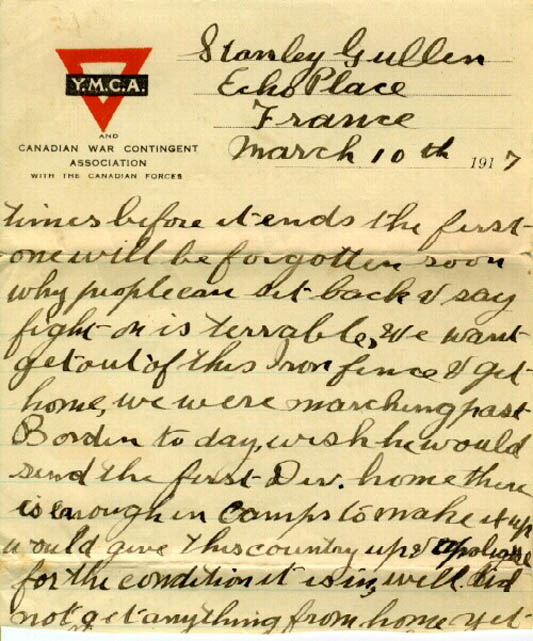 Stanley Gullen
Echo Place
France
March 10th 1917
Y.M.C.A.
AND
CANADIAN WAR CONTINGENT
ASSOCIATION
WITH THE CANADIAN FORCES
times before it ends the first
one will be forgotten soon
why people can sit back & say
fight on is terrable, We want
get out of this Iron fence & get
home, we were marching past
Bordin to day, wish he would
send the first Div. home there
is enough in camps to make it up
would give this country up &
for the condition it is in, well did
not get anything from home yet